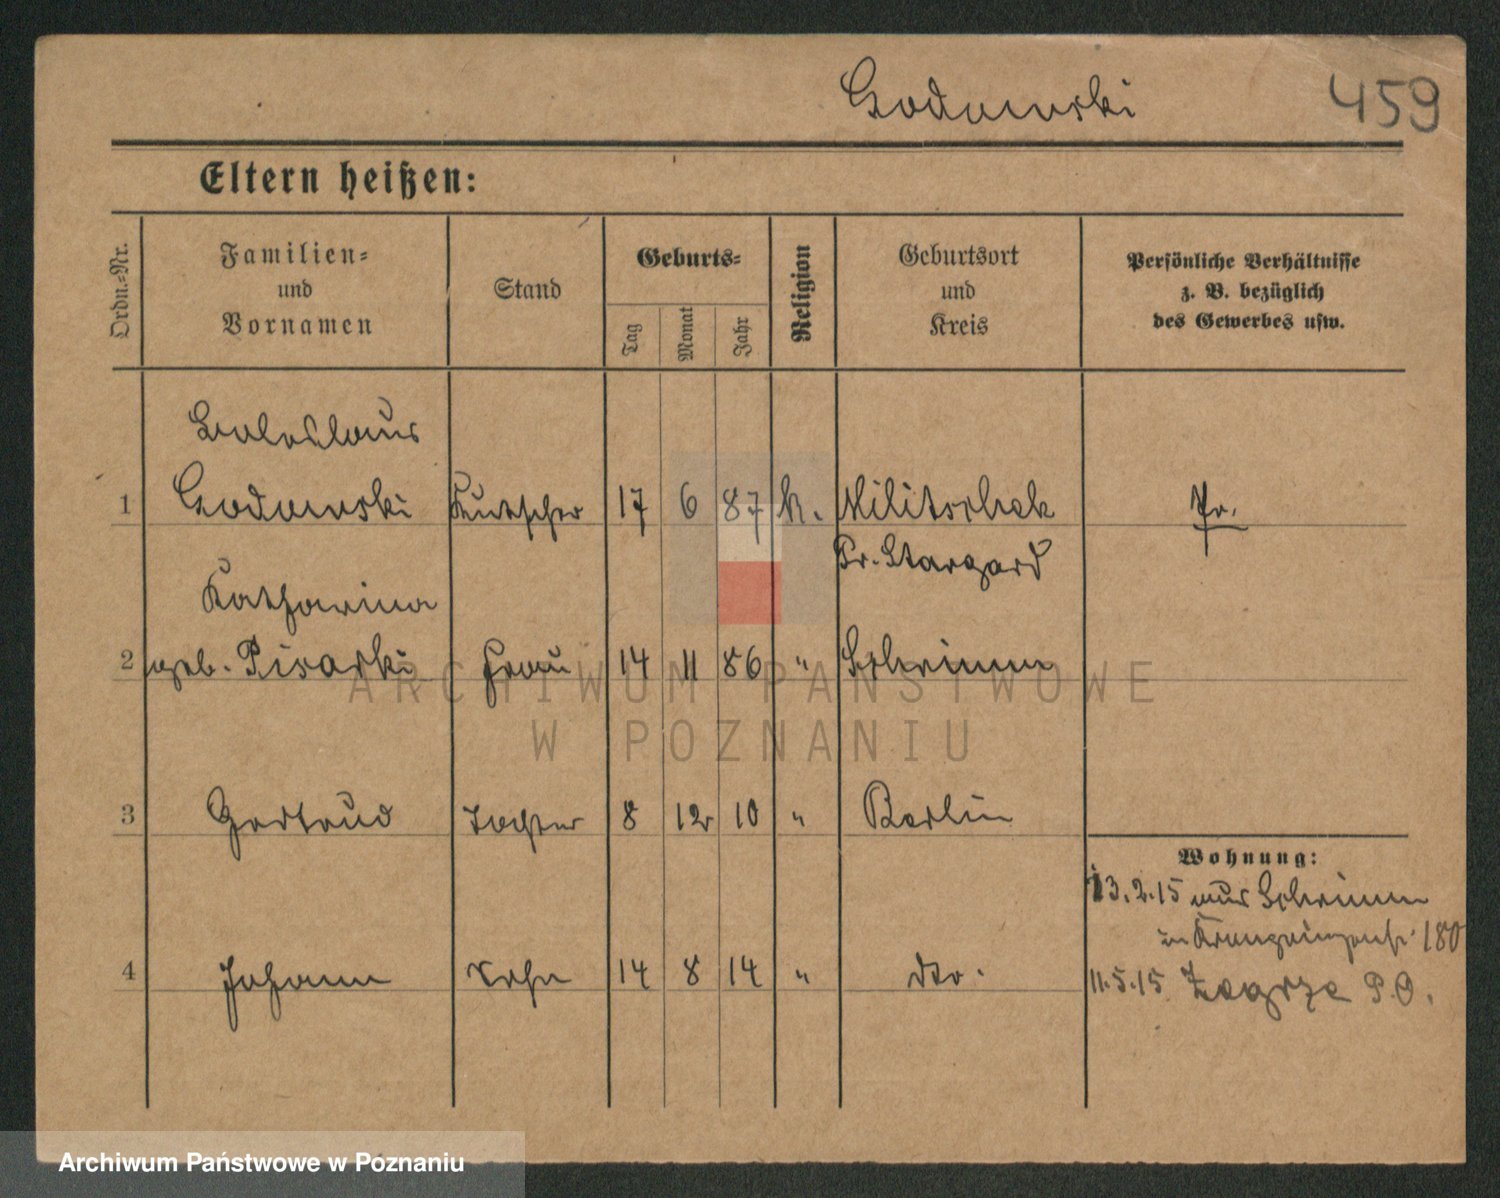 Godowski 459
Eltern heißen:
Ordn.=Nr.
Familien=
und
Vornamen
Stand
Geburts=
Tag
Monat
Jahr
Religion
Geburtsort
und
Kreis
Persönliche Verhältnisse
z. B. bezüglich
des Gewerbes usw.
Boleslaus
1 Godowski Kutscher 17 6 87 k. Militschek Pr.
Pr. Stargard
Katharina
2 geb. Pisarski Frau 14 11 86 " Schrimm
3 Gertrud Tochter 8 12 10 " Berlin
Wohnung:
13.2.15 aus Schrimm
in 180
4 Johann Sohn 14 8 14 " dto.
11.5.15 Zagrze P.O.
ARCHIWUM PAŃSTWOWE
W POZNANIU
Archiwum Państwowe w Poznaniu